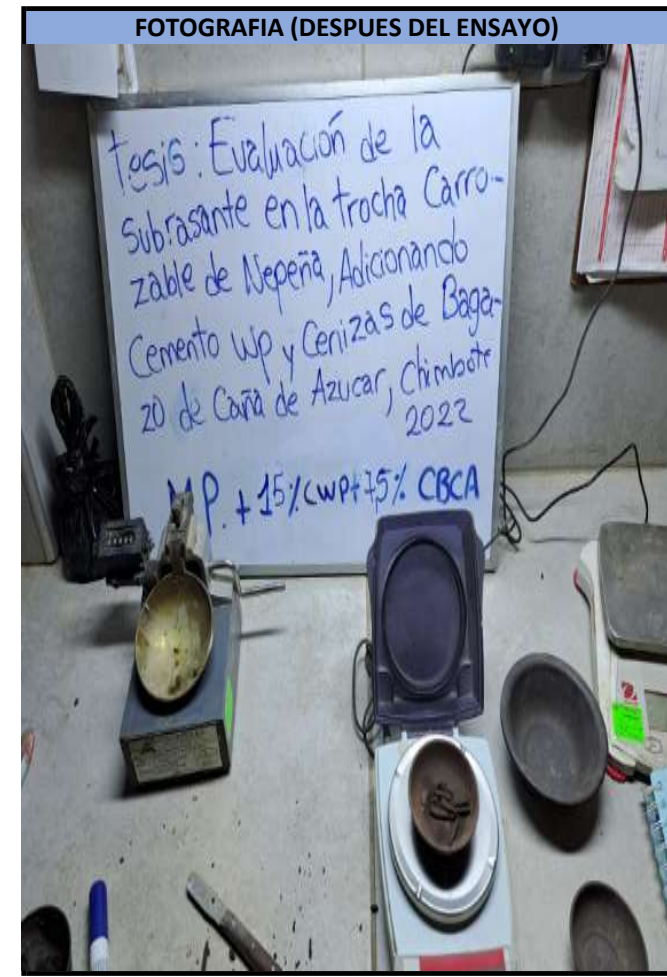 FOTOGRAFIA (DESPUES DEL ENSAYO)
Tesis: Evaluación de la
Subrasante en la trocha Carro-
zable de Nepeña, Adicionando
Cemento WP y Cenizas de Baga-
zo de Caña de Azucar, Chimbote
2022
M.P. + 15% CWP + 7,5% CBCA